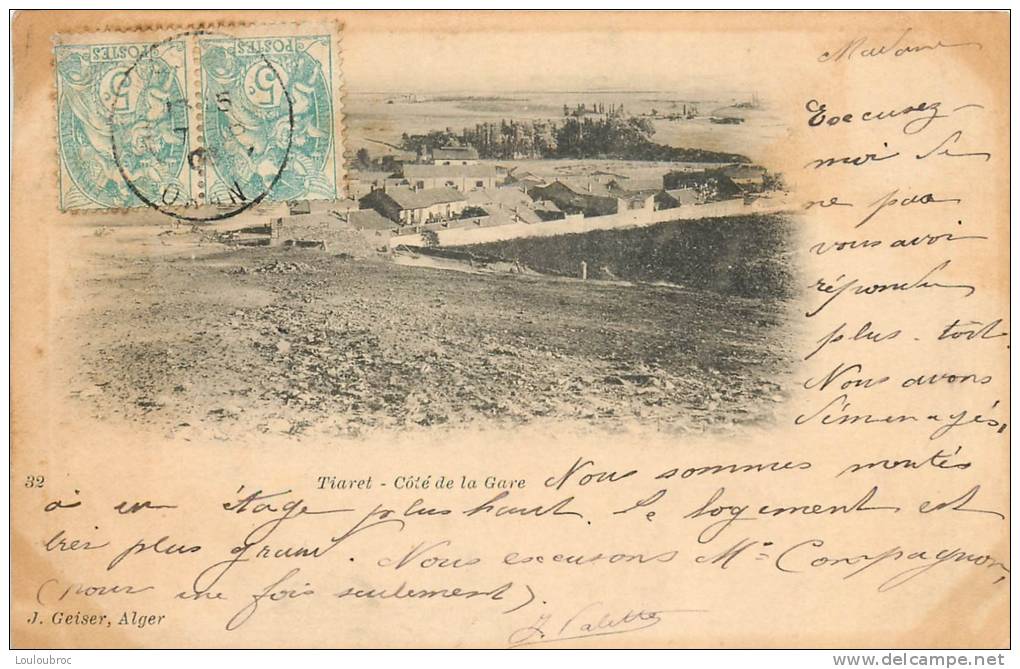 POSTES
5
POSTES
5
ORAN
Madame
Excusez-
moi de
ne pas
vous avoir
répondu
plus-tôt.
Nous avons
démenagés,
32
Tiaret - Côté de la Gare
Nous sommes montés
à un étage plus haut. le logement est
trés plus grand. Nous excusons Mme Compagnon,
(pour une fois seulement)
J. Valette
J. Geiser, Alger
Louloubroc
http://www.delcampe.net